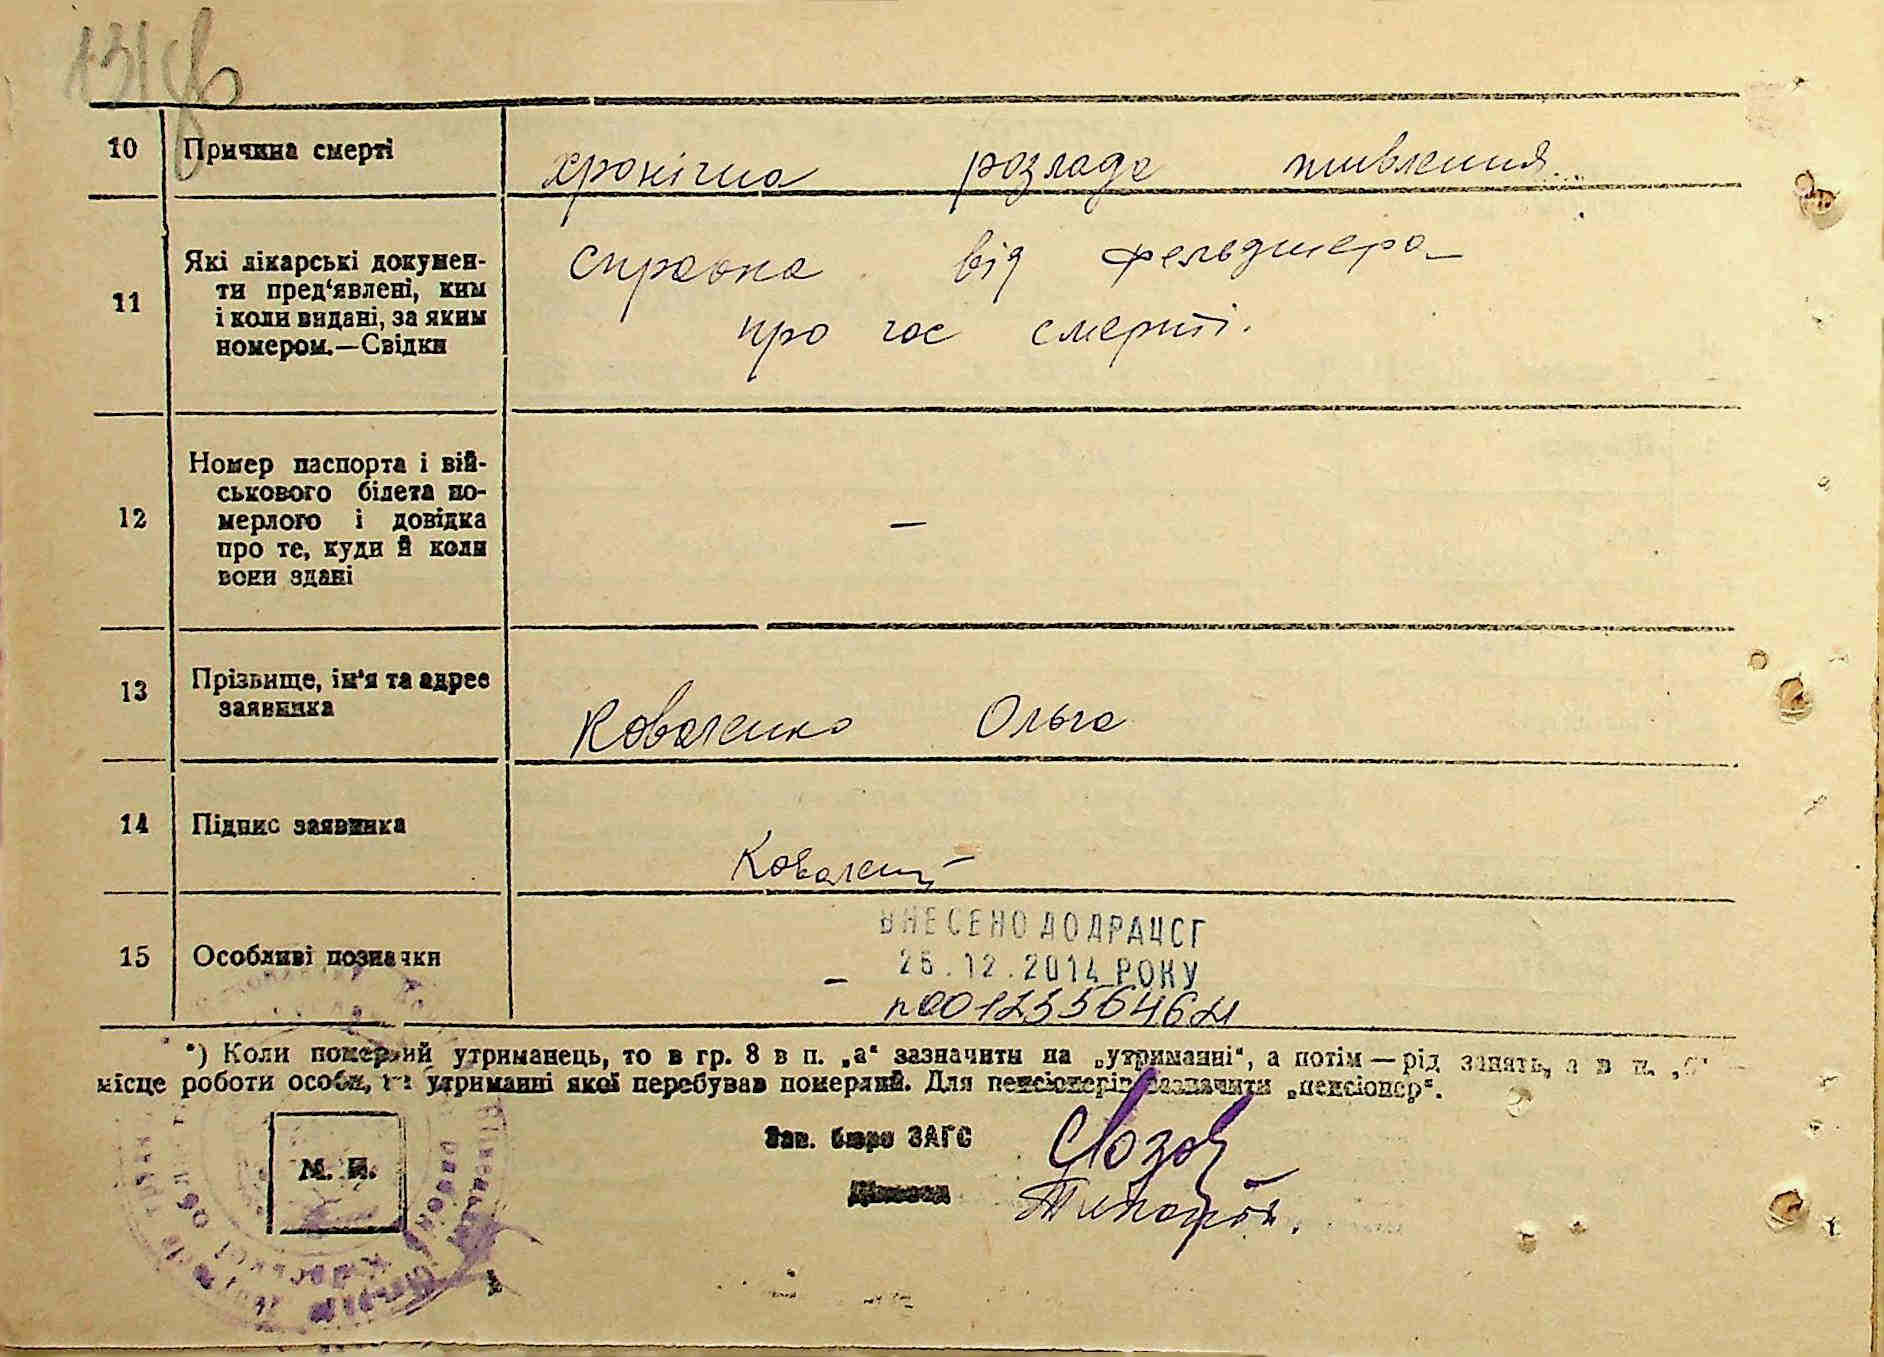 131
10 Причина смерті хронічна розлада живлення
11 Які лікарські докумен-
ти пред‘явлені, ким
і коли видані, за яким
номером.—Свідки
справка від фельдшера
про час смерті.
12 Номер паспорта і вій-
ськового білета по-
мерлого і довідка
про те, куди й коли
вони здані
—
13 Прізвище, ім‘я та адрес
заявника
Коваленко Ольга
14 Підпис заявника
15 Особливі позначки
ВНЕСЕНО ДО ДРАЦСГ
26.12.2014 РОКУ
–
*) Коли померлий утриманець, то в гр. 8 в п. „а“ зазначити на „утриманні“, а потім — рід занять, а в п. „б“ —
місце роботи особи, на утриманні якої перебував померлий. Для пенсіонерів зазначити „пенсіонер“.
Зав. бюро ЗАГС
М. П.
Діловод